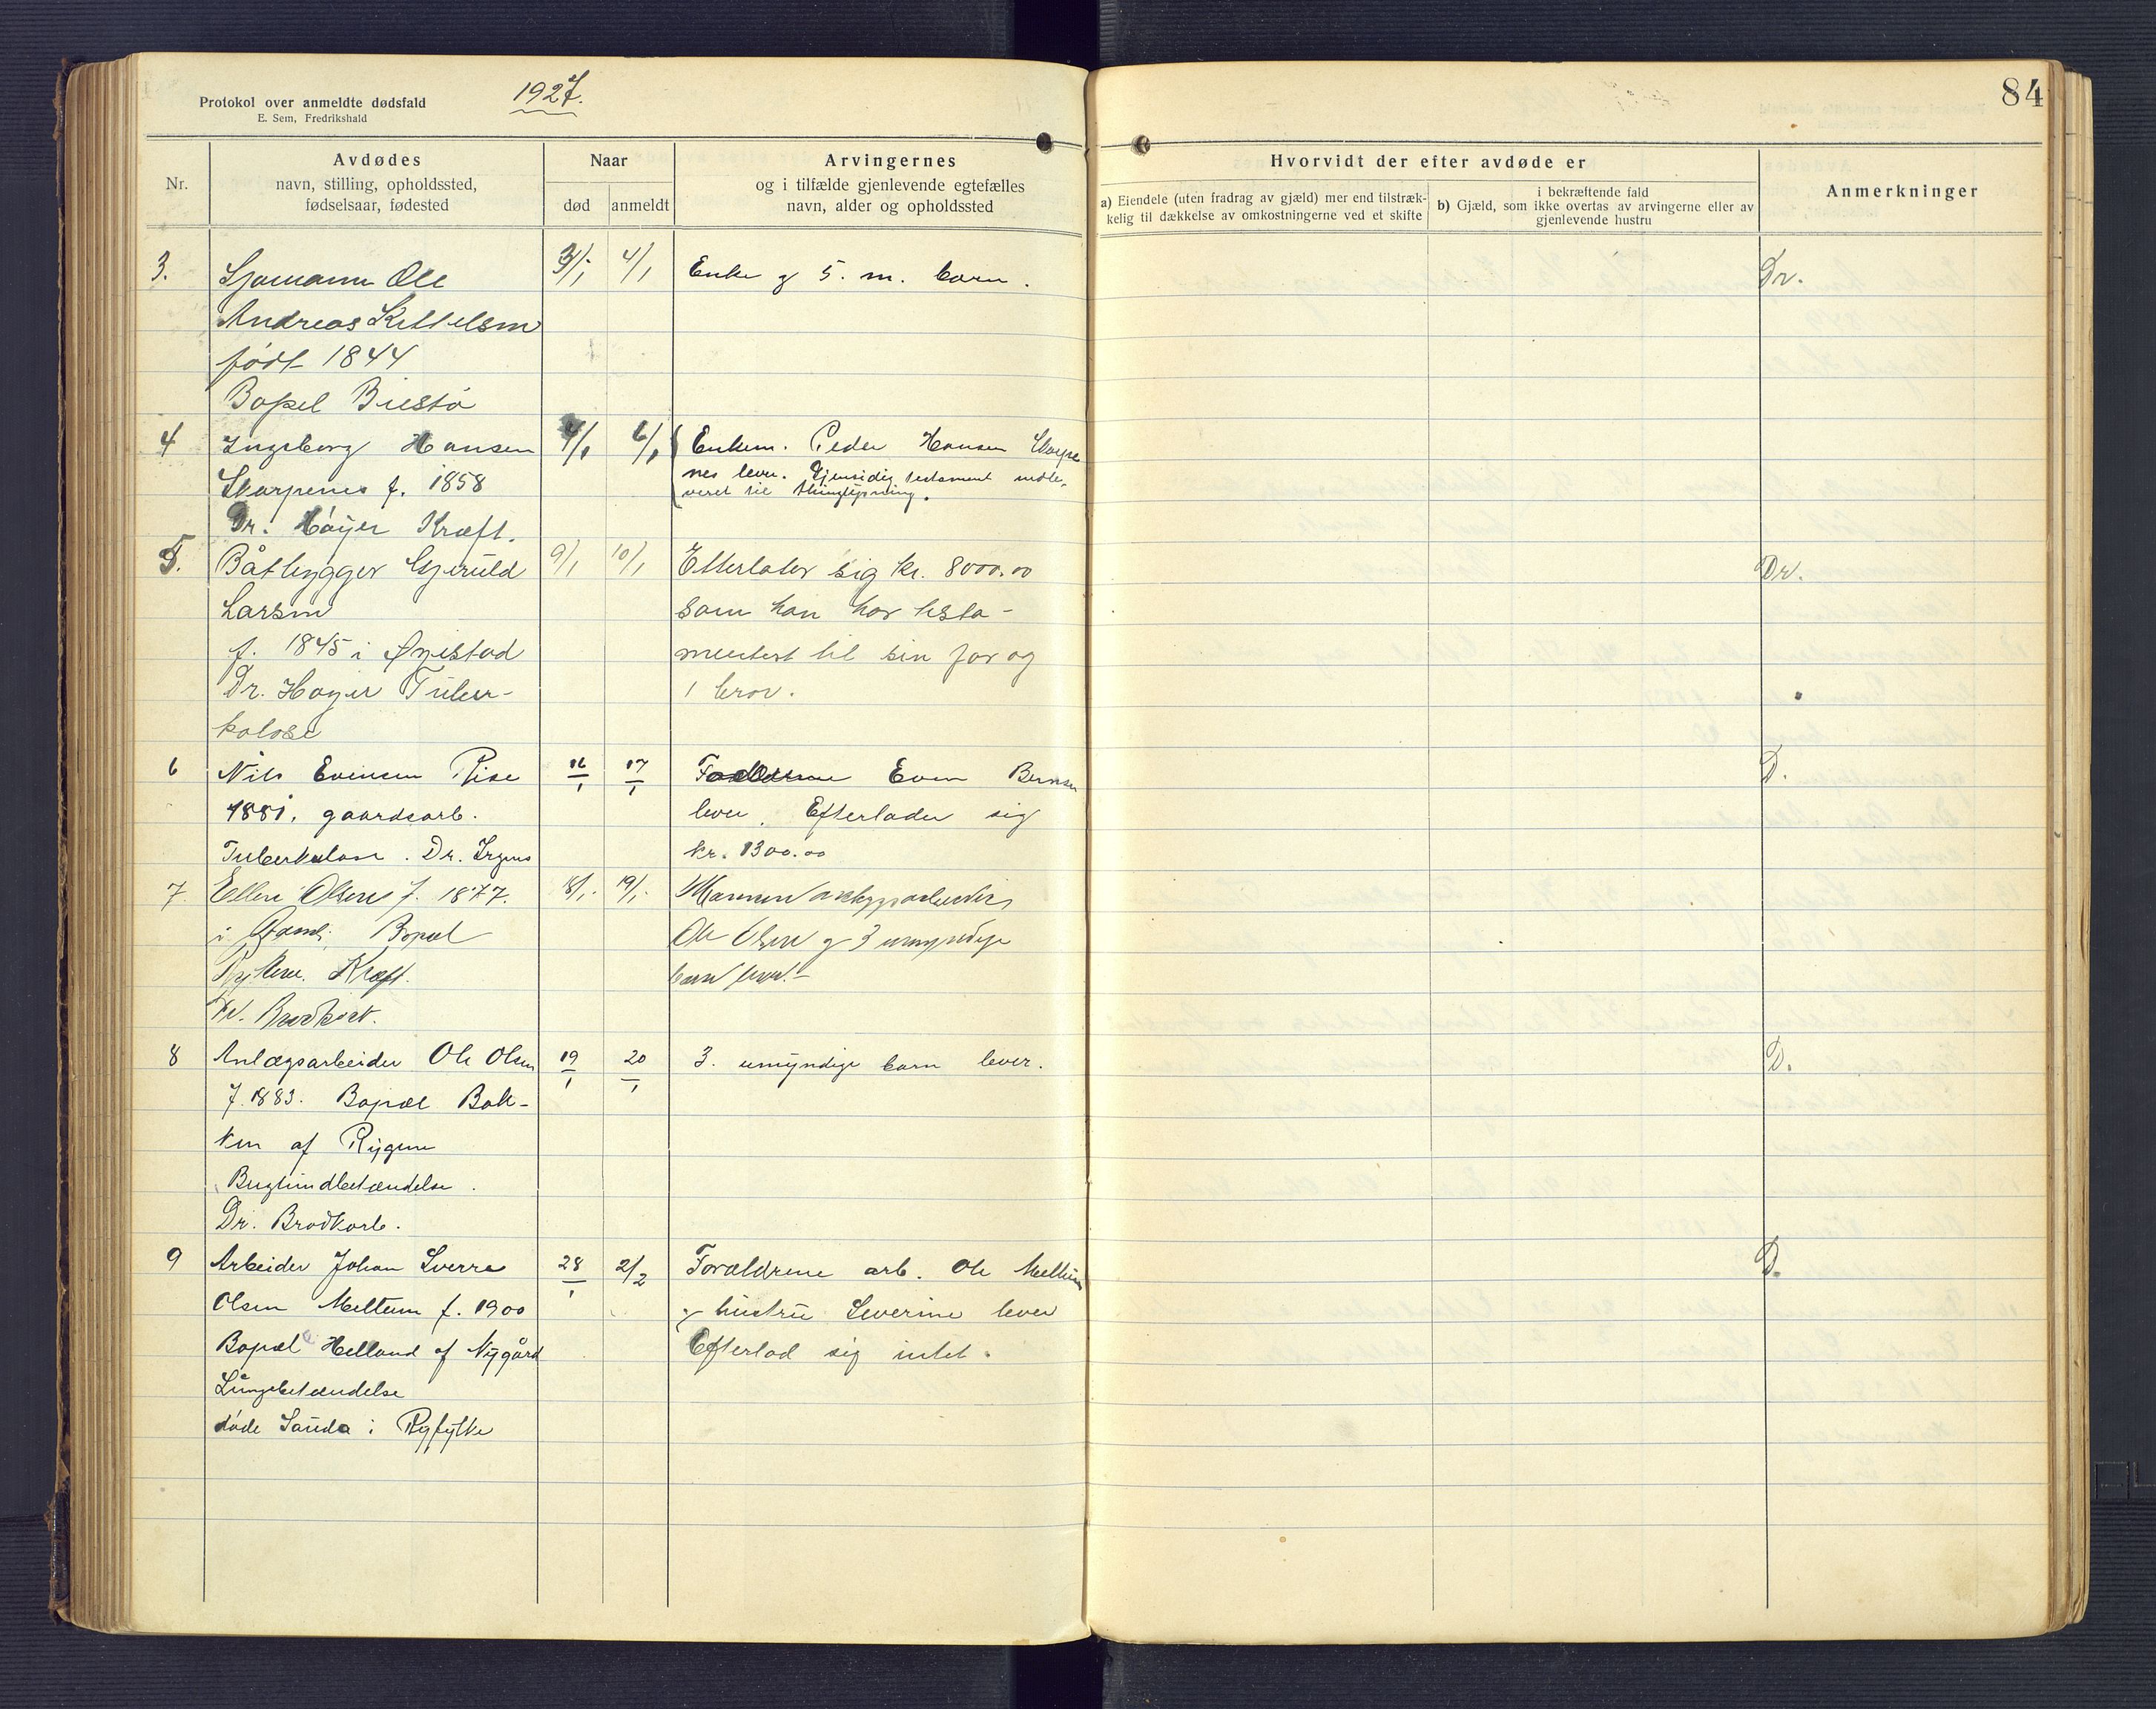 Protokol over anmeldte dødsfald
E. Sem, Fredrikshald
1927.
84
Nr.
Avdødes
navn, stilling, opholdssted,
fødselsaar, fødested
Naar
død
anmeldt
Arvingernes
og i tilfælde gjenlevende egtefælles
navn, alder og opholdssted
Hvorvidt der efter avdøde er
a) Eiendele (uten fradrag av gjæld) mer end tilstræk-
kelig til dækkelse av omkostningerne ved et skifte
i bekræftende fald
b) Gjæld, som ikke overtas av arvingerne eller av
gjenlevende hustru
Anmerkninger
3. Sjømann Ole 3/1 4/1 Enke g 5. m. barn. Dr.
Andreas Kittelsen
født 1844
Bopel Biestø
4 Ingeborg Hansen 4/1 6/1 Enkem. Peder Hansen Skarpe
Skarpenes f. 1858 nes lever. Gjensidig testament indle-
veret til thinglysning.
Dr. Høyer Kræft.
5. Båtbygger Gjeruld 9/1 10/1 Etterlater sig kr. 8000.00 Dr.
Larsen som han har testa-
f. 1845 i Øyestad mentert til sin far og
Dr. Høyer Tuber- 1 bror.
kolose
6 Nils Evensen Rise 16/1 17/1 Forældrene Even Bernsen D.
1881. gaardsarb. lever. Efterlader sig
Tuberkulose. Dr. Irgens kr. 1300.00
7. Ellen Olsen f. 1877. 18/1. 19/1. Mannen anlæggsarbeider
i Bopæl Ole Olsen g 3 umyndige
Rykene. Kræft. barn lever.
Dr. Brodkorb.
8 Anlægsarbeider Ole Olsen 19/1 20/1 3. umyndige barn lever. D.
f. 1883. Bopæl Bak-
ken af Rygene
Bughindbetændelse.
Dr. Brodkorb.
9 Arbeider Johan Sverre 28/1 2/2 Forældrene arb. Ole Meltum D.
Olsen Meltum f. 1900 g hustru Severine lever
Bopæl Helland af Nygård Efterlod sig intet.
Lungebetændelse
døde Sauda i Ryfylke